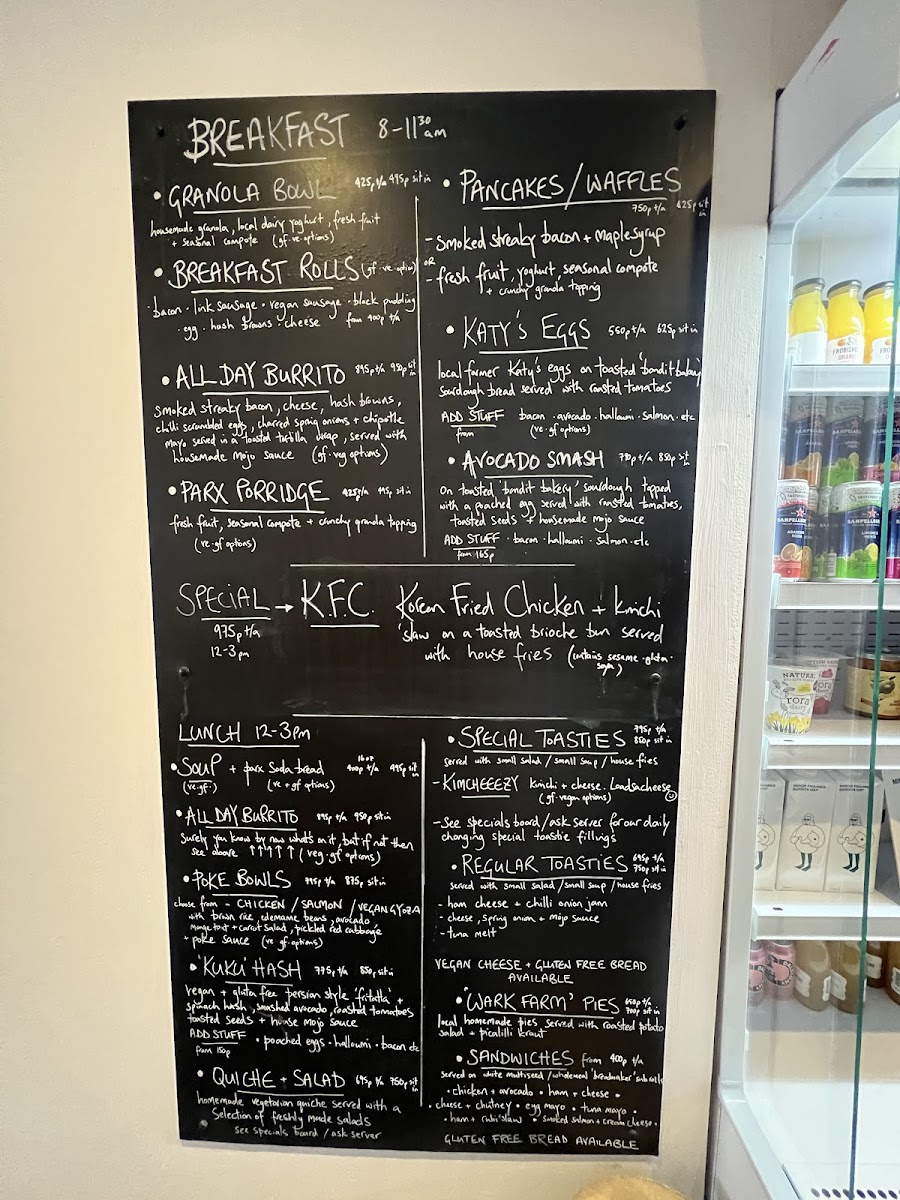 BREAKFAST 8-11³⁰am
• GRANOLA BOWL 425p t/a 495p sit in
housemade granola, local dairy yoghurt, fresh fruit
+ seasonal compote (gf·ve·options)
• BREAKFAST ROLLS (gf·ve·option)
· bacon · link sausage · vegan sausage · black pudding
· egg · hash browns · cheese from 400p t/a
• ALL DAY BURRITO 895p t/a 950p sit in
smoked streaky bacon, cheese, hash browns,
chilli scrambled eggs, charred spring onions + chipotle
mayo served in a toasted tortilla wrap, served with
housemade mojo sauce (gf·veg options)
• PARX PORRIDGE 425p t/a sit in
fresh fruit, seasonal compote + crunchy granola topping
(ve·gf options)
• PANCAKES/WAFFLES
750p t/a sit in
- smoked streaky bacon + maple syrup
OR
- fresh fruit, yoghurt, seasonal compote
+ crunchy granola topping
• KATY'S EGGS 550p t/a 625p sit in
local farmer Katy's eggs on toasted 'bandit bakery'
sourdough bread served with roasted tomatoes
ADD STUFF bacon · avocado · halloumi · salmon · etc
from (ve·gf options)
• AVOCADO SMASH t/a 850p sit in
on toasted 'bandit bakery' sourdough topped
with a poached egg served with roasted tomatoes,
toasted seeds + housemade mojo sauce
ADD STUFF · bacon · halloumi · salmon · etc
from 165p
SPECIAL → K.F.C. Korean Fried Chicken + kimchi
975p t/a slaw on a toasted brioche bun served
12-3pm with house fries (contains sesame · gluten ·
soya)
LUNCH 12-3pm
• SOUP + parx Soda bread 16oz 400p t/a 495p sit in
(ve·gf) (ve + gf options)
• ALL DAY BURRITO 895p t/a 950p sit in
Surely you know by now what's on it, but if not then
see above ↑↑↑↑↑ (veg·gf options)
• POKE BOWLS t/a 875p sit in
choose from - CHICKEN / SALMON / VEGAN GYOZA
with brown rice, edemame beans, avocado,
carrot salad, pickled red cabbage
+ poke sauce (ve·gf·options)
• 'KUKU' HASH 775p t/a 850p sit in
vegan + gluten free persian style 'fritatta' +
spinach hash, smashed avocado, roasted tomatoes
toasted seeds + house mojo sauce
ADD STUFF · poached eggs · halloumi · bacon etc
from 150p
• QUICHE + SALAD 695p t/a 750p sit in
homemade vegetarian quiche served with a
Selection of freshly made salads
see specials board / ask server
• SPECIAL TOASTIES 795p t/a 850p sit in
served with small salad / small soup / house fries
- KIMCHEEEZY kimchi + cheese. Loadsacheese
(gf·vegan options)
- See specials board / ask server for our daily
changing special toastie fillings
• REGULAR TOASTIES 695p t/a 750p sit in
served with small salad / small soup / house fries
- ham cheese + chilli onion jam
- cheese, spring onion + mojo sauce
- tuna melt
VEGAN CHEESE + GLUTEN FREE BREAD
AVAILABLE
• 'WARK FARM' PIES 650p t/a 700p sit in
local homemade pies served with roasted potato
salad + picalilli kraut
• SANDWICHES from 400p t/a
served on white multiseed / wholemeal 'breadmaker'
· chicken + avocado · ham + cheese ·
· cheese + chutney · egg mayo · tuna mayo ·
· ham + slaw · smoked salmon + cream cheese ·
GLUTEN FREE BREAD AVAILABLE
FROBISHERS
SANPELLEGRINO
NATURAL
rora
dairy